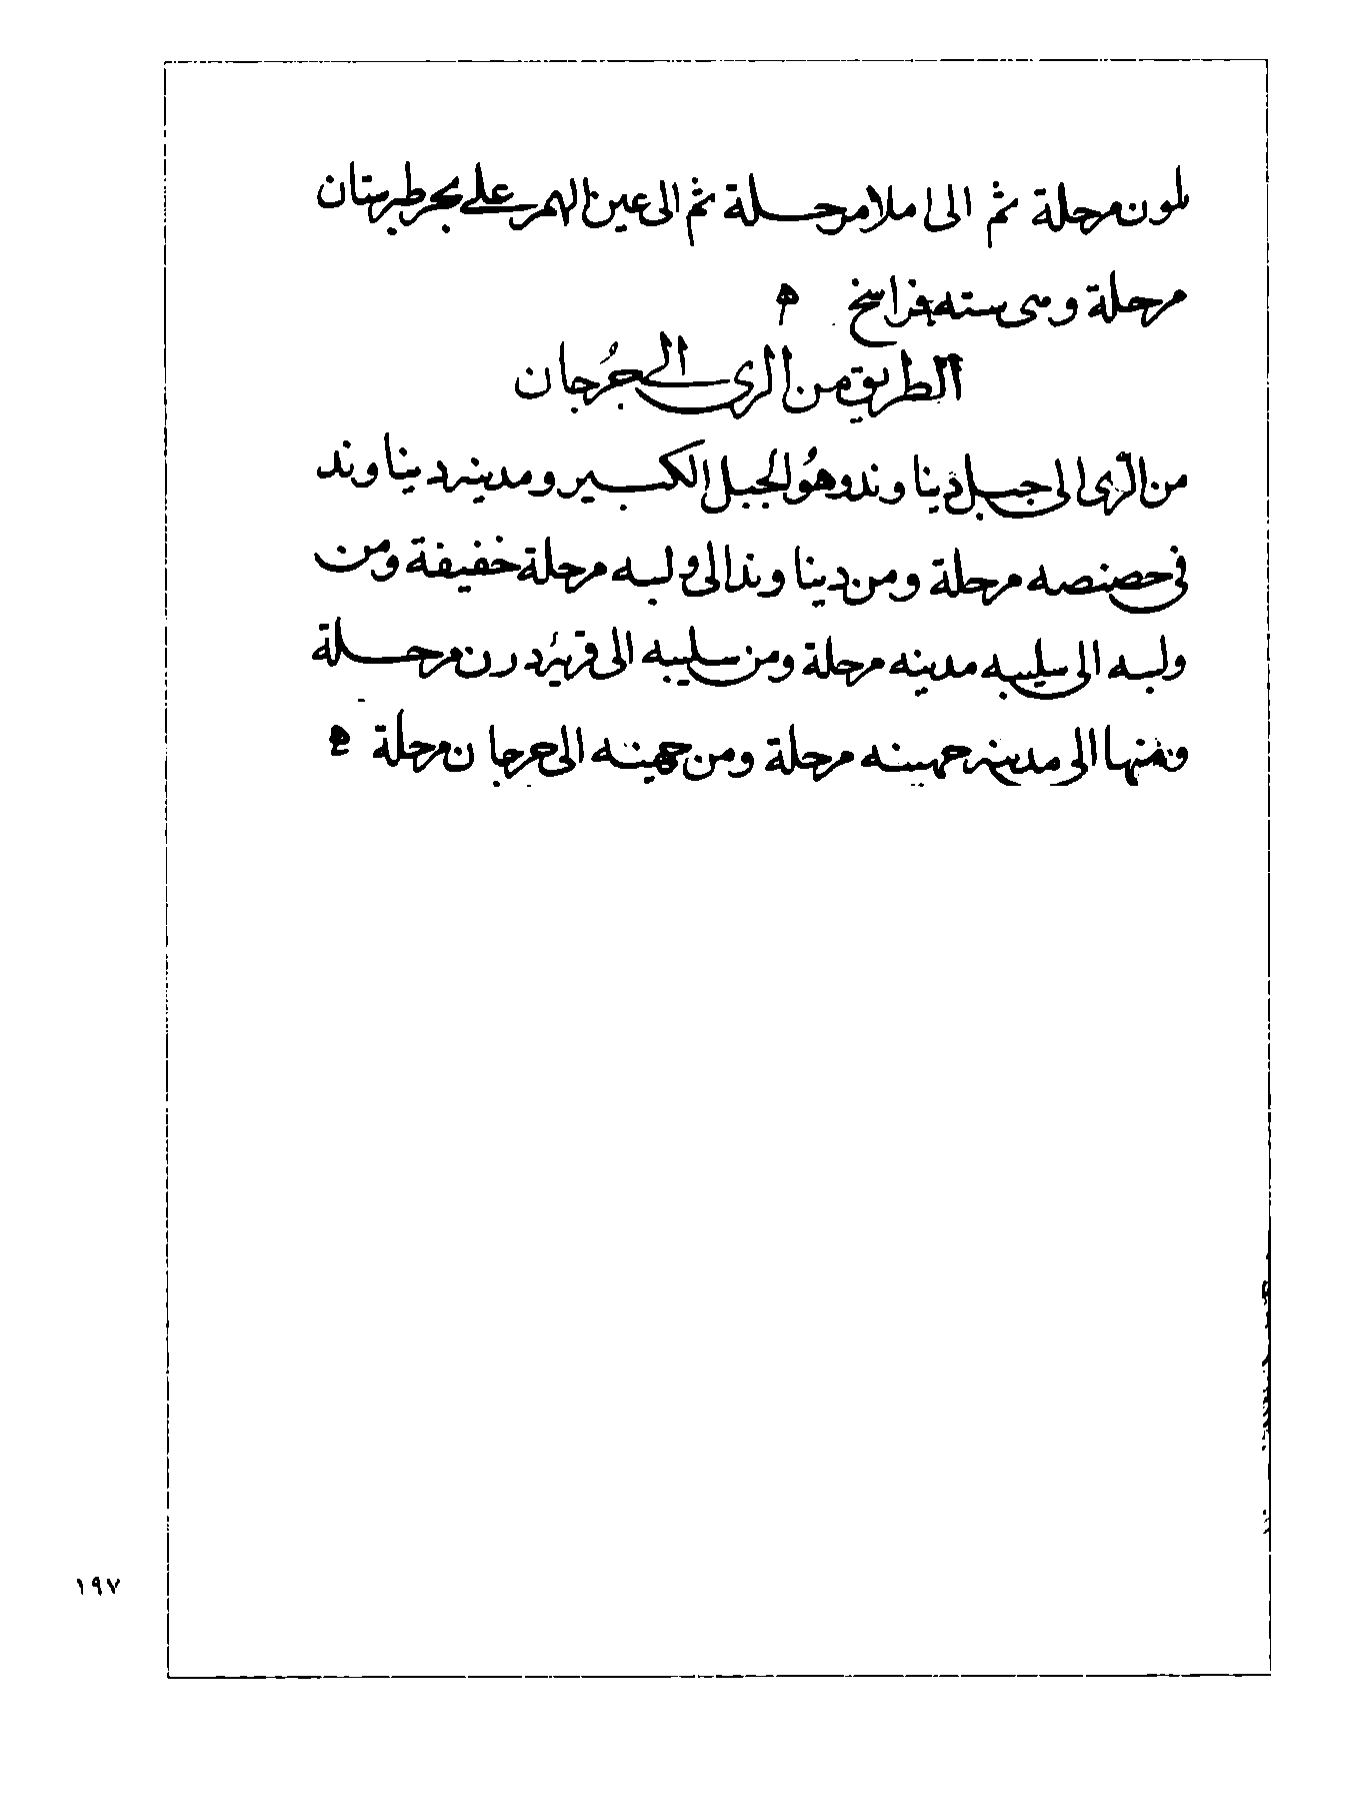 ملون مرحلة ثم الى املا مرحلة ثم الى عين الهم على بحر طبرستان
مرحلة وهى سته فراسخ ه
الطريق من الرى الى جرجان
من الرّى الى جبل دينا وند وهو الجبل الكبير ومدينه دينا وند
فى حصنصه مرحلة ومن دينا وند الى ولبسه مرحلة خفيفة ومن
ولبسه الى سليبه مدينه مرحلة ومن سليبه الى قرية درن مرحلة
ومنها الى مدينه حمهينه مرحلة ومن حمهينه الى جرجان مرحلة ه
١٩٧